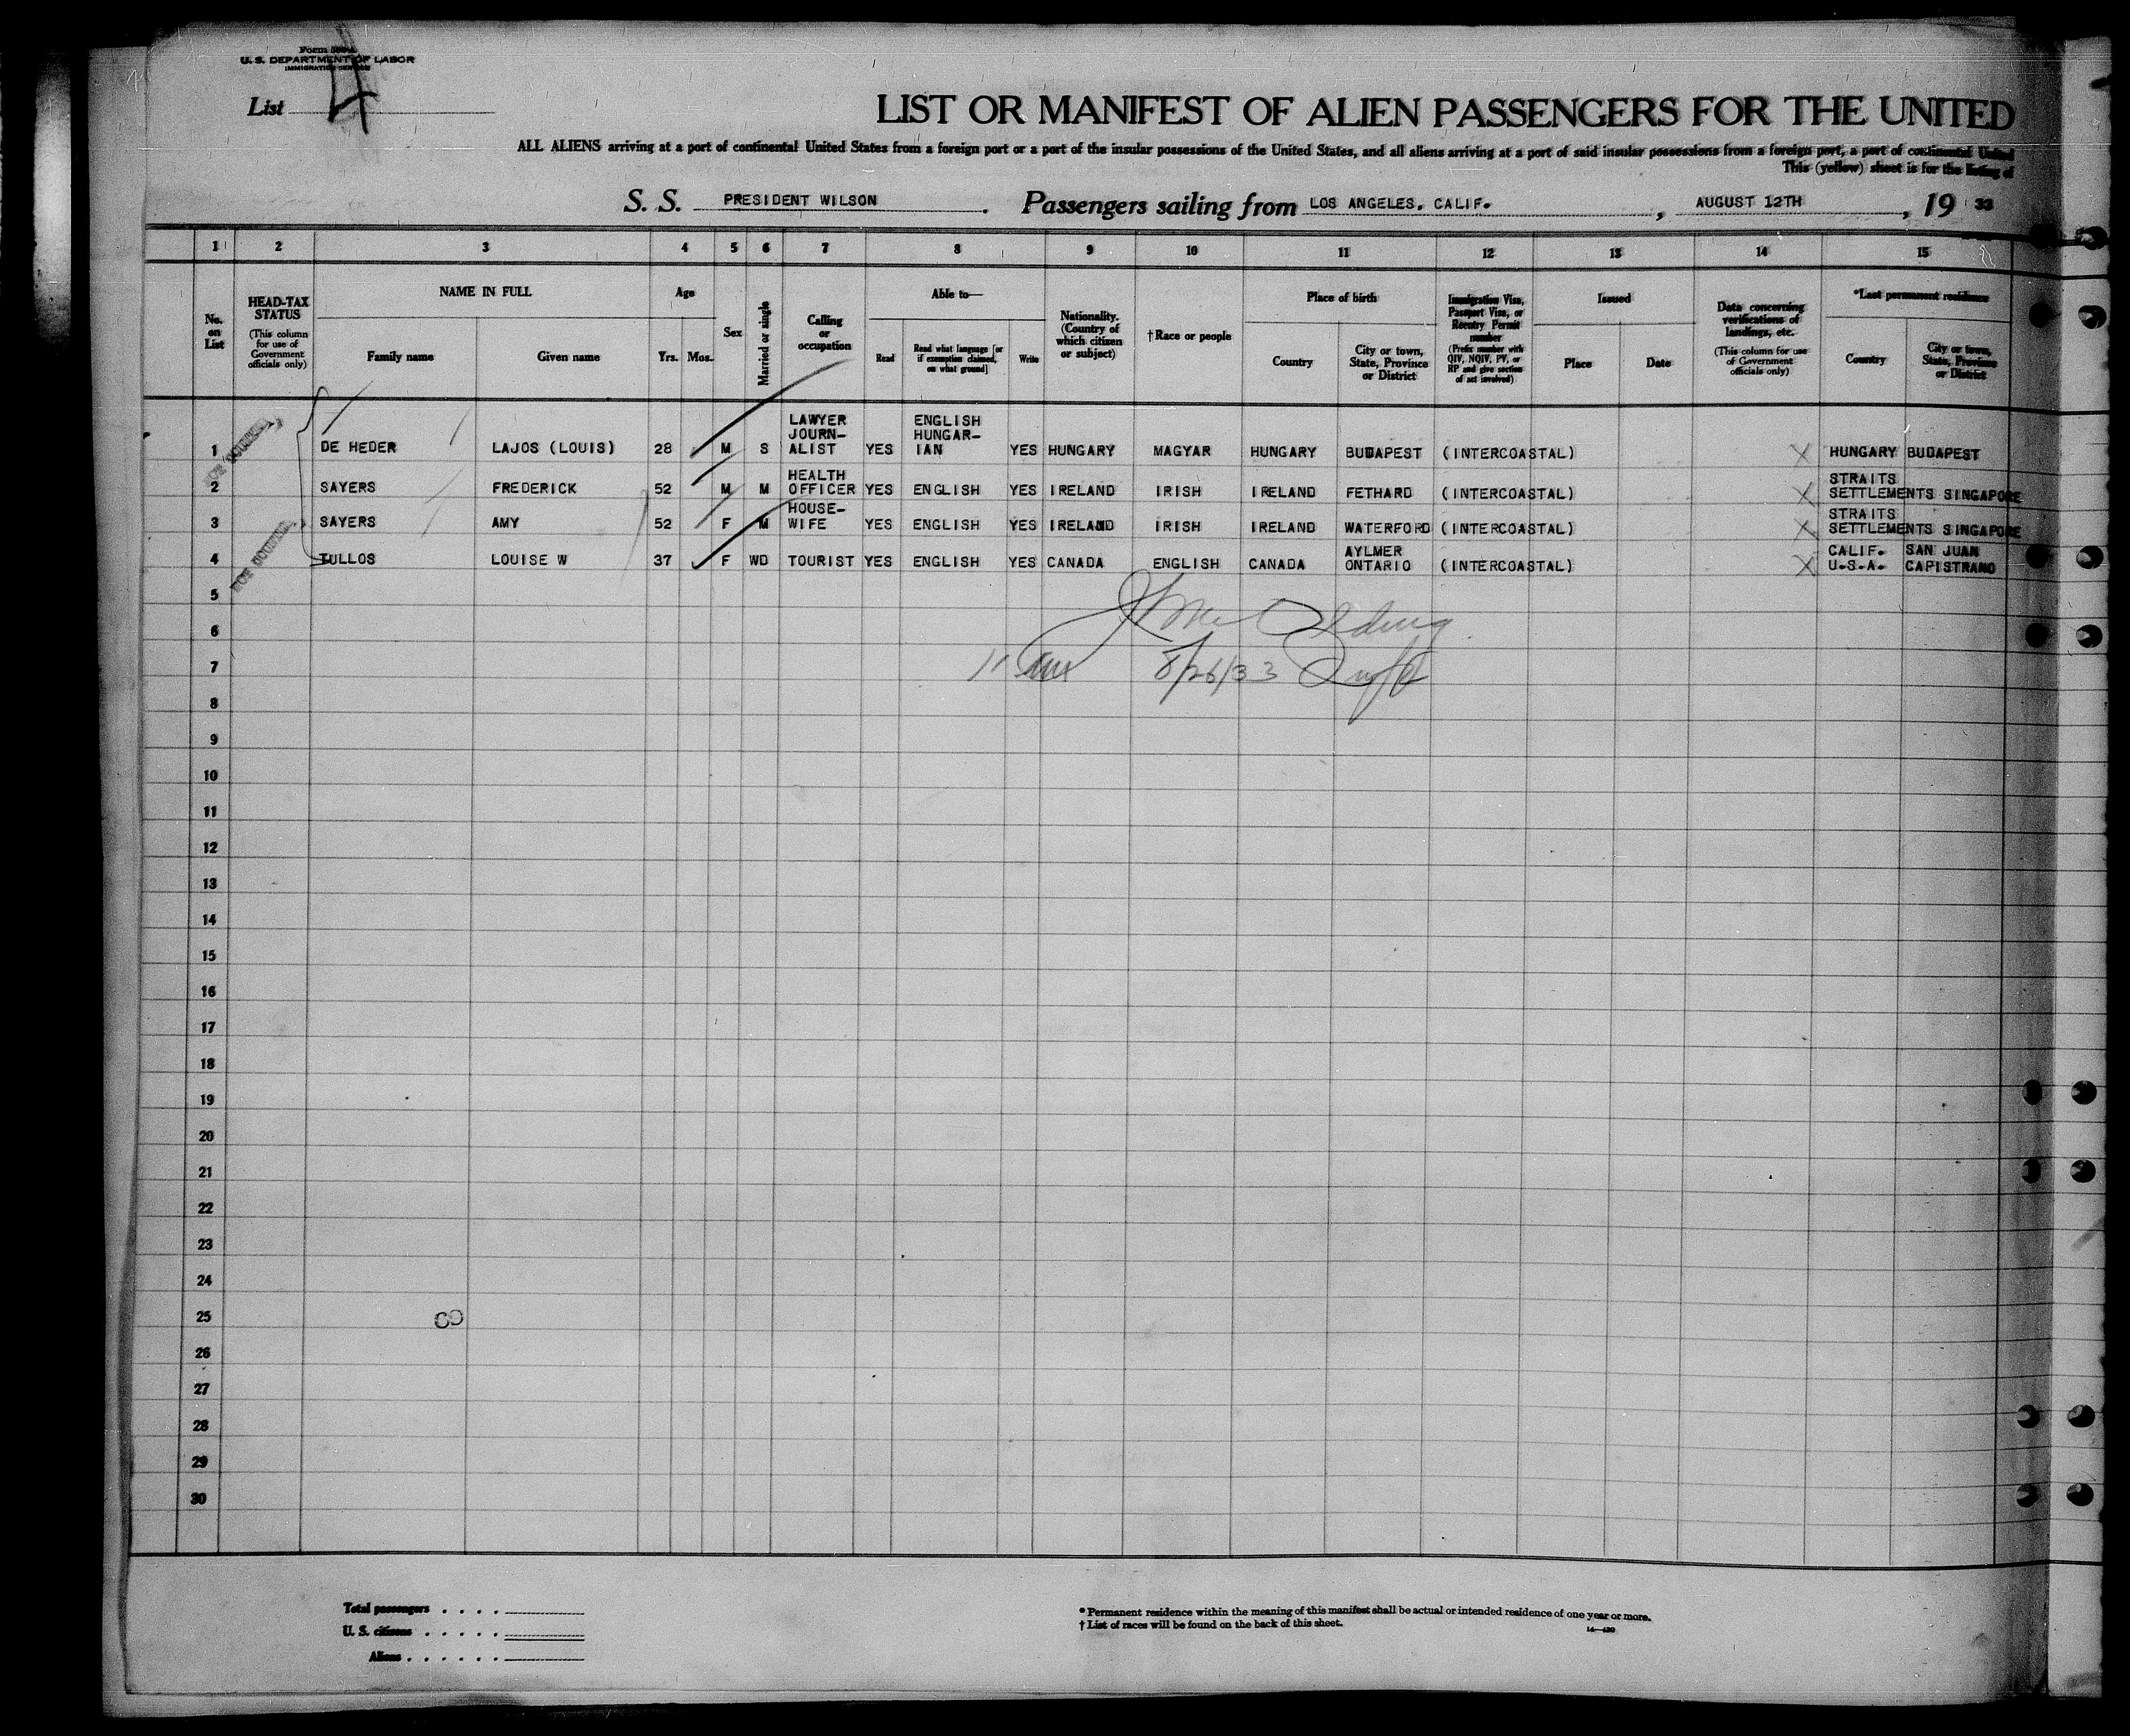 Form
U. S. DEPARTMENT OF LABOR
IMMIGRATION SERVICE
List 4
LIST OR MANIFEST OF ALIEN PASSENGERS FOR THE UNITED
ALL ALIENS arriving at a port of continental United States from a foreign port or a port of the insular possessions of the United States, and all aliens arriving at a port of said insular possessions from a foreign port, a port of continental United
This (yellow) sheet is for the listing of
S. S. PRESIDENT WILSON . Passengers sailing from LOS ANGELES, CALIF. , AUGUST 12TH , 19 33
1 2 3 4 5 6 7 8 9 10 11 12 13 14 15
No. on List
HEAD-TAX STATUS (This column for use of Government officials only)
NAME IN FULL
Family name Given name
Age
Yrs. Mos.
Sex
Married or single
Calling or occupation
Able to—
Read Read what language [or if exemption claimed, on what ground] Write
Nationality. (Country of which citizen or subject)
†Race or people
Place of birth
Country City or town, State, Province or District
Immigration Visa, Passport Visa, or Reentry Permit number (Prefix number with QIV, NQIV, PV, or RP and give section of act involved)
Issued
Place Date
Data concerning verifications of landings, etc. (This column for use of Government officials only)
*Last permanent residence
Country City or town, State, Province or District
1 DE HEDER LAJOS (LOUIS) 28 M S LAWYER JOURN- ALIST YES ENGLISH HUNGAR- IAN YES HUNGARY MAGYAR HUNGARY BUDAPEST (INTERCOASTAL) X HUNGARY BUDAPEST
2 SAYERS FREDERICK 52 M M HEALTH OFFICER YES ENGLISH YES IRELAND IRISH IRELAND FETHARD (INTERCOASTAL) X STRAITS SETTLEMENTS SINGAPORE
3 SAYERS AMY 52 F M HOUSE- WIFE YES ENGLISH YES IRELAND IRISH IRELAND WATERFORD (INTERCOASTAL) X STRAITS SETTLEMENTS SINGAPORE
4 TULLOS LOUISE W 37 F WD TOURIST YES ENGLISH YES CANADA ENGLISH CANADA AYLMER ONTARIO (INTERCOASTAL) X CALIF. U.S.A. SAN JUAN CAPISTRANO
5
6
7 8/26/33
8
9
10
11
12
13
14
15
16
17
18
19
20
21
22
23
24
25
26
27
28
29
30
Total passengers . . . .
U. S. citizens . . . . .
Aliens . . . . . .
* Permanent residence within the meaning of this manifest shall be actual or intended residence of one year or more.
† List of races will be found on the back of this sheet.